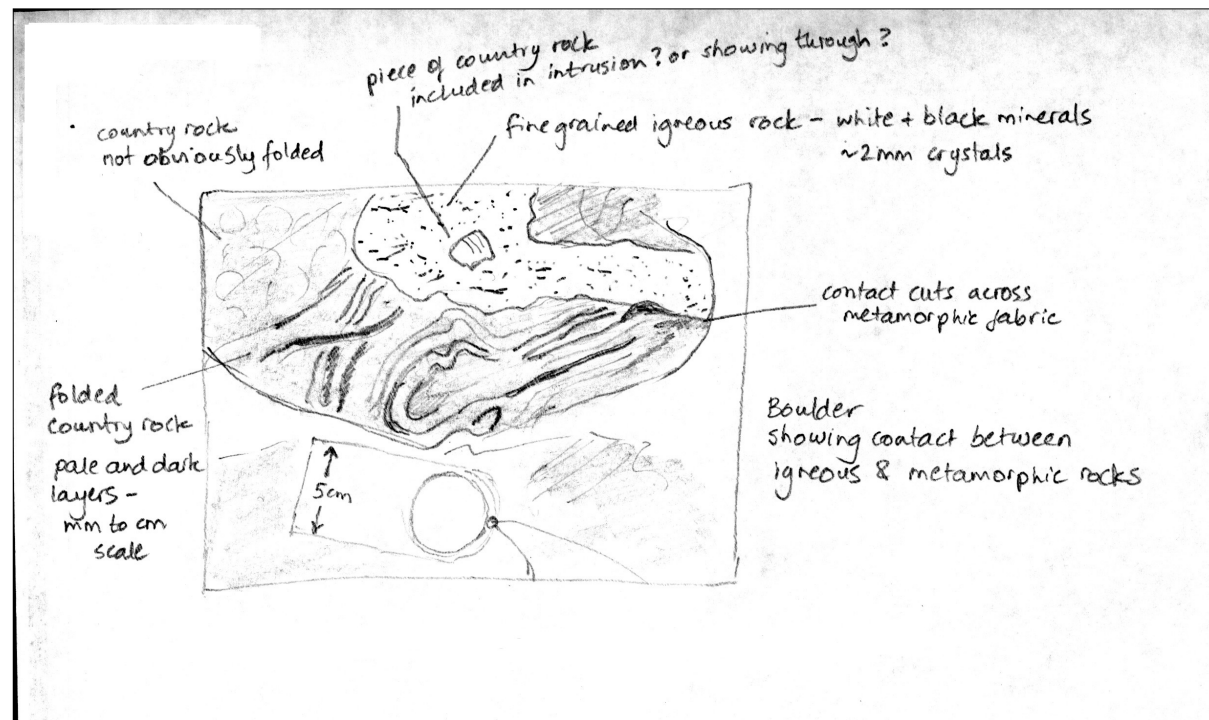 piece of country rock
included in intrusion? or showing through?
country rock
not obviously folded
fine grained igneous rock - white + black minerals
~2mm crystals
contact cuts across
metamorphic fabric
folded
country rock
pale and dark
layers -
mm to cm
scale
5cm
Boulder
showing contact between
igneous & metamorphic rocks